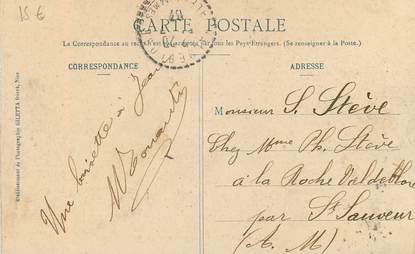 15 €
CARTE POSTALE
La Correspondance au recto n'est pas acceptée par tous les Pays Étrangers. (Se renseigner à la Poste.)
CORRESPONDANCE
ADRESSE
Établissement de Photographie GILETTA frères, Nice
Une bisette à Jean
Monsieur S. Stève
Chez Mme Ph. Stève
à la Roche Valdeblore
par St Sauveur
(A. M)